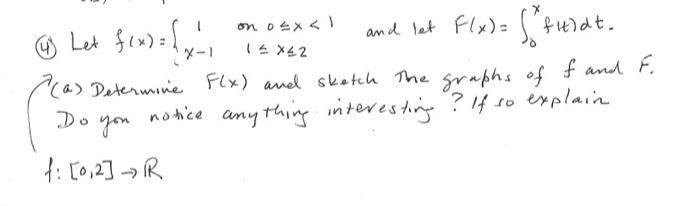 ④ Let f(x) = { 1 on 0 ≤ x < 1 and let F(x) = ∫₀ˣ f(t)dt.
x-1 1 ≤ x ≤ 2
(a) Determine F(x) and sketch the graphs of f and F.
Do you notice anything interesting? If so explain
f: [0,2] → ℝ